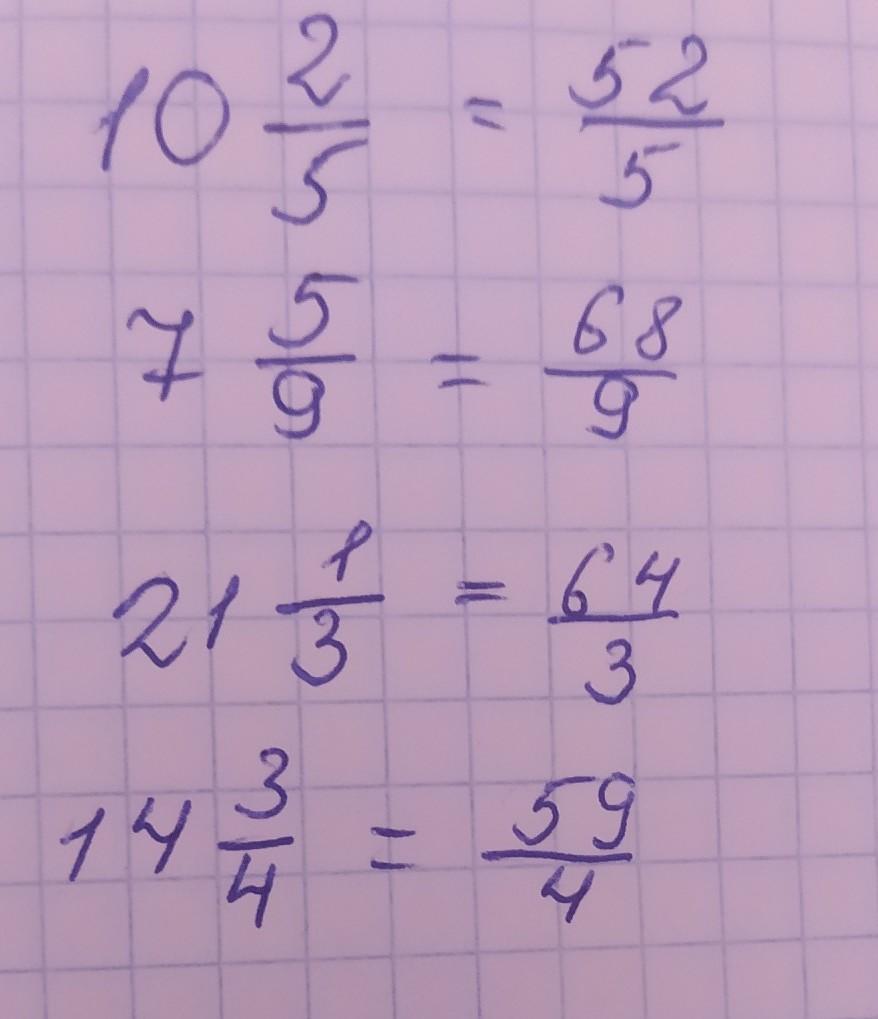 10 2/5 = 52/5
7 5/9 = 68/9
21 1/3 = 64/3
14 3/4 = 59/4